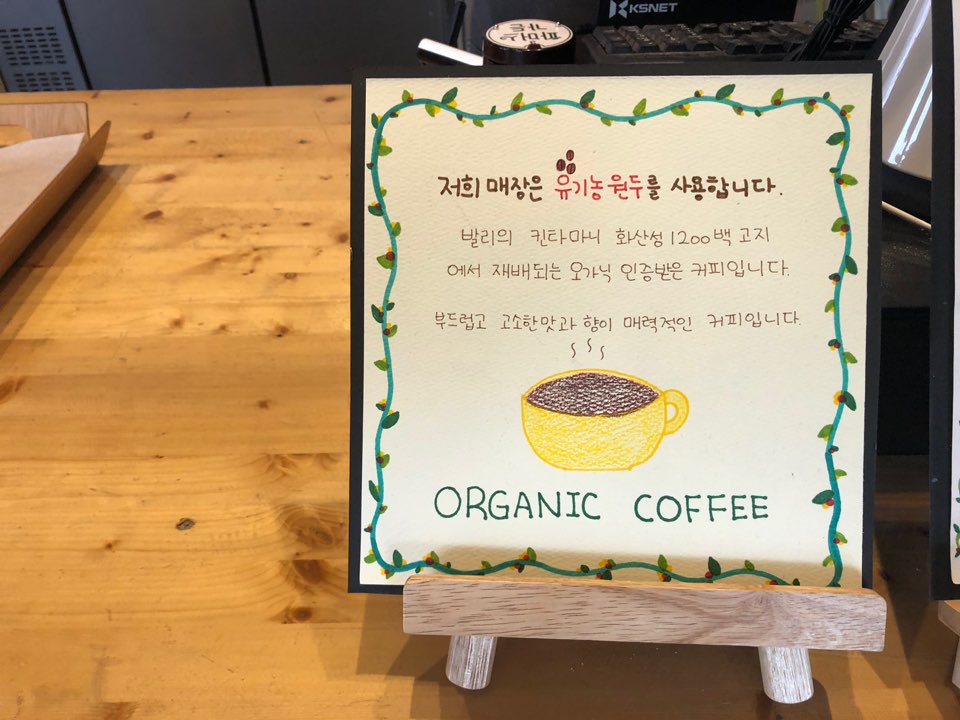 KSNET
저희 매장은 유기농 원두를 사용합니다.
발리의 킨타마니 화산성 1200백 고지
에서 재배되는 오가닉 인증받은 커피입니다.
부드럽고 고소한맛과 향이 매력적인 커피입니다.
ORGANIC COFFEE